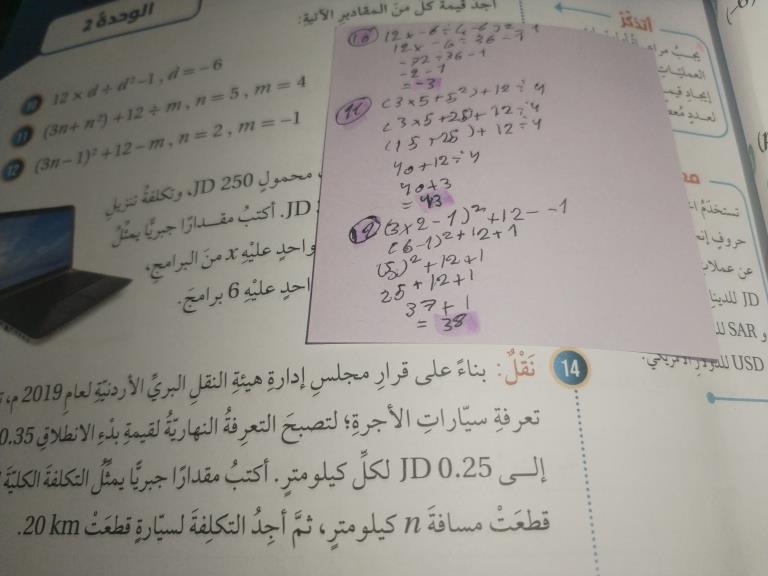 الوحدة 2
أجد قيمة كل من المقادير الآتية:
أتذكر
العمليات
10 12 × d ÷ d² – 1 , d = –6
11 (3n + n²) + 12 ÷ m , n = 5 , m = 4
12 (3n – 1)² + 12 – m , n = 2 , m = –1
10 12 x -6 ÷ (-6)² - 1
12 x -6 ÷ 36 - 1
-72 ÷ 36 - 1
-2 - 1
= -3
11 (3 x 5 + 5²) + 12 ÷ 4
(3 x 5 + 25) + 12 ÷ 4
(15 + 25) + 12 ÷ 4
40 + 12 ÷ 4
40 + 3
= 43
12 (3 x 2 - 1)² + 12 - -1
(6 - 1)² + 12 + 1
(5)² + 12 + 1
25 + 12 + 1
37 + 1
= 38
محمول JD 250، وتكلفة تنزيل
JD. أكتب مقدارًا جبريًّا يمثل
واحد عليه x من البرامج،
عليه 6 برامج.
تستخدم
عن عملات
JD
SAR
USD للدولار الأمريكي.
14 نقل: بناءً على قرار مجلس إدارة هيئة النقل البري الأردنية لعام 2019 م،
تعرفة سيارات الأجرة؛ لتصبح التعرفة النهارية لقيمة بدء الانطلاق 0.35
إلى JD 0.25 لكل كيلومتر. أكتب مقدارًا جبريًّا يمثل التكلفة الكلية
قطعت مسافة n كيلومتر، ثم أجد التكلفة لسيارة قطعت 20 km.